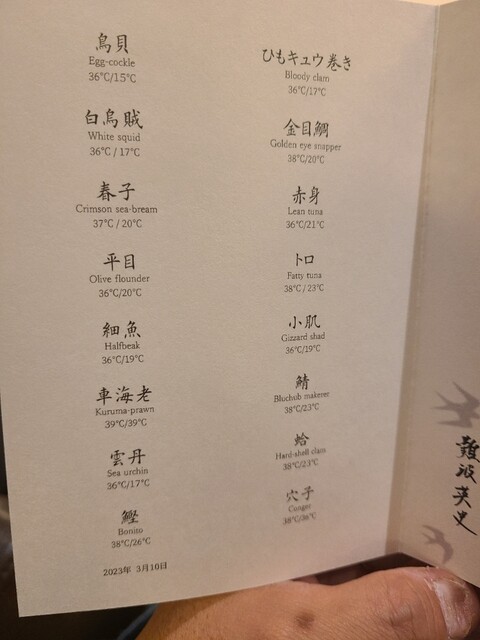 鳥貝
Egg-cockle
36℃/15℃
白烏賊
White squid
36℃ / 17℃
春子
Crimson sea-bream
37℃ / 20℃
平目
Olive flounder
36℃/20℃
細魚
Halfbeak
36℃/19℃
車海老
Kuruma-prawn
39℃/39℃
雲丹
Sea urchin
36℃/17℃
鰹
Bonito
38℃/26℃
2023年 3月10日
ひもキュウ巻き
Bloody clam
36℃/17℃
金目鯛
Golden eye snapper
38℃/20℃
赤身
Lean tuna
36℃/21℃
トロ
Fatty tuna
38℃ / 23℃
小肌
Gizzard shad
36℃/19℃
鯖
Bluchub makerer
38℃/23℃
蛤
Hard-shell clam
38℃/23℃
穴子
Conger
38℃/36℃
難波英史